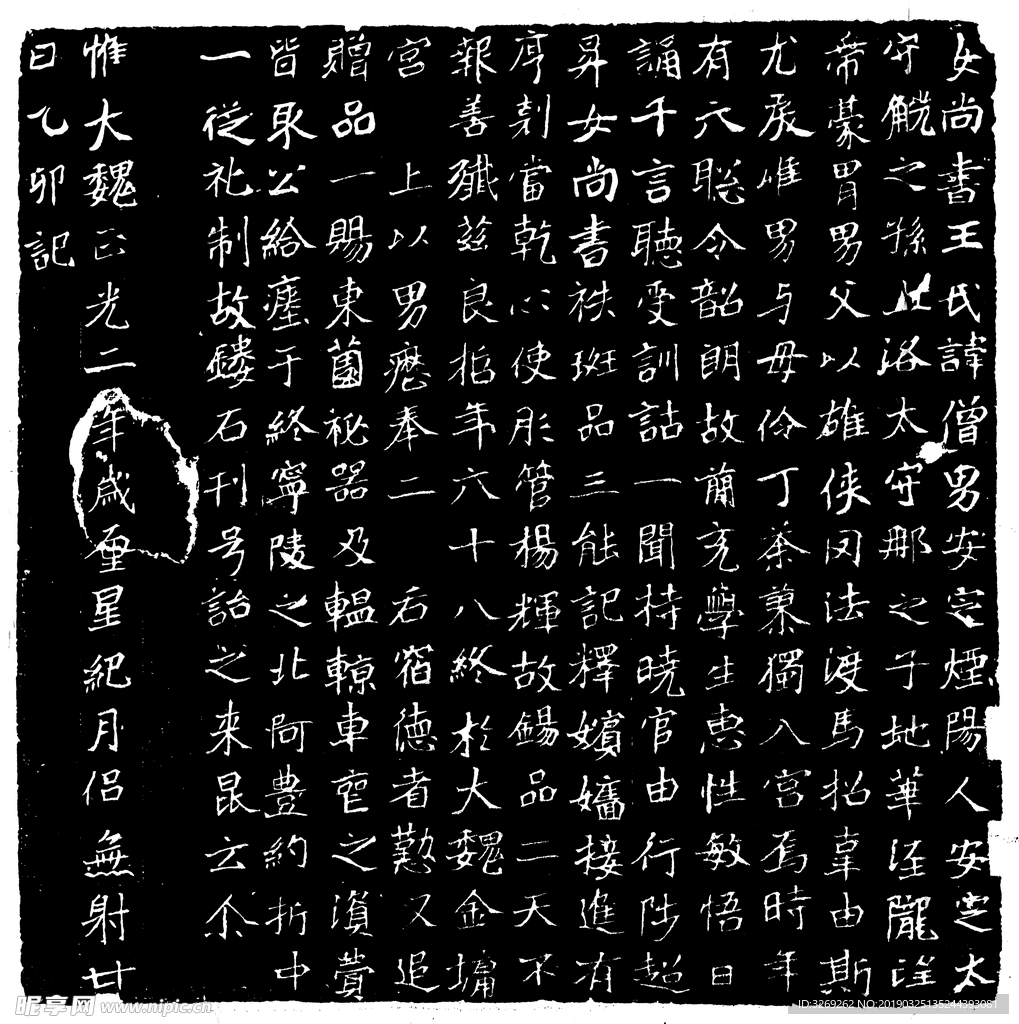 女尚書王氏諱僧男安定煙陽人安定太
守觥之孫上洛太守那之子地華涇隴望
帶豪胄男父以雄俠罔法渡馬招辜由斯
尤戾唯男与母伶丁荼蓼獨入宮焉時年
有六聡令韶朗故簡充學生惠性敏悟日
誦千言聽受訓詁一聞持曉官由行陟超
昇女尚書袟班品三能記釋嬪嬙接進有
序剋當乾心使彤管楊輝故錫品二天不
報善殲茲良哲年六十八終於大魏金墉
宮 上以男歷奉二 后宿德者懃又追
贈品一賜東薗祕器及轀輬車窆之濱費
皆取公給瘞于終寧陵之北阿豊約折中
一從礼制故鏤石刊号詒之来昆云尒
惟大魏正光二年歲壐星紀月侣無射廿
日乙卯記
昵享网 www.nipic.cn
ID:3269262 NO:20190325135244393081